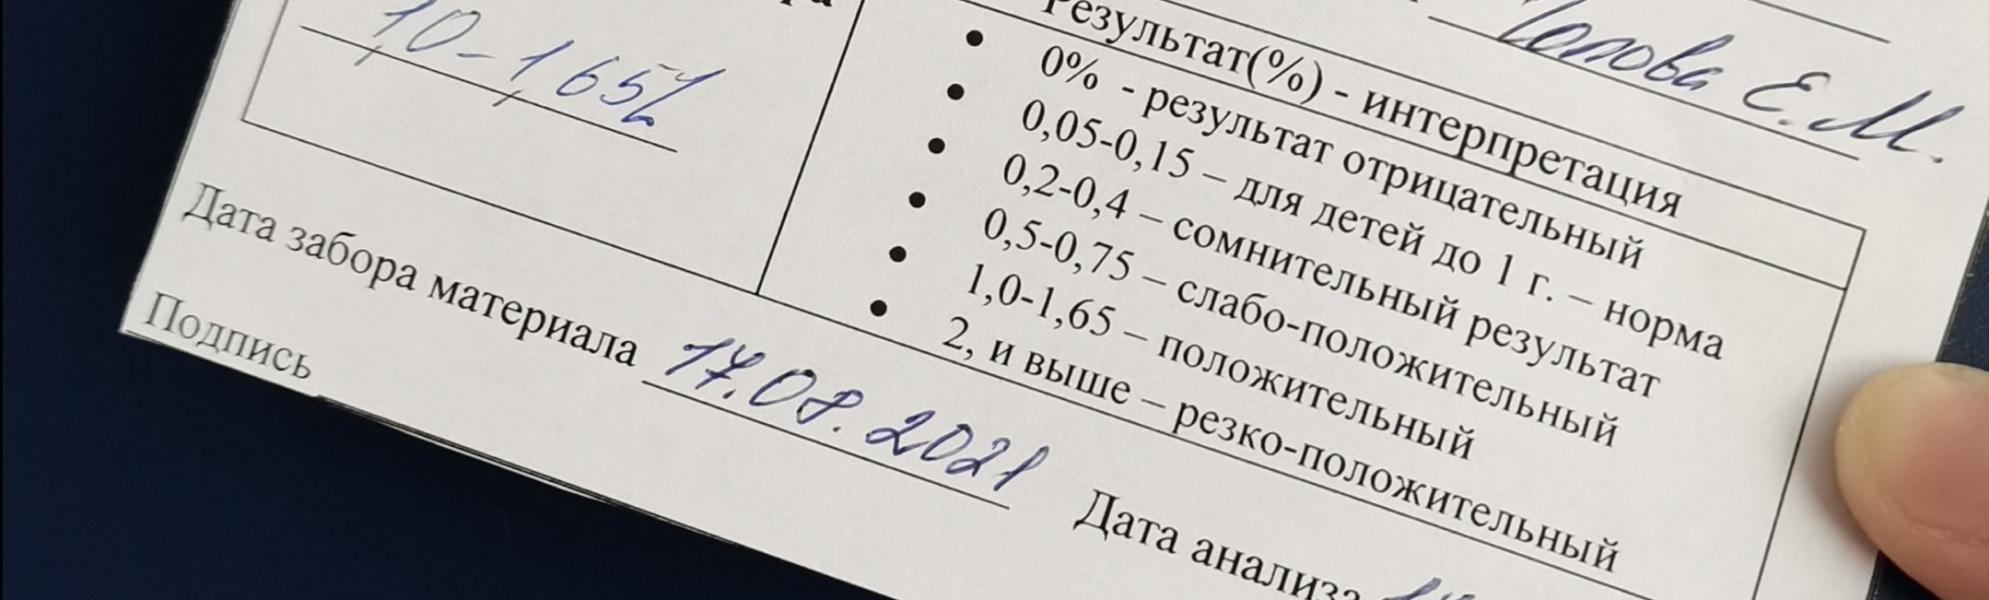 1,0-1,65%
Попова Е.М.
Результат(%) - интерпретация
0% - результат отрицательный
0,05-0,15 – для детей до 1 г. – норма
0,2-0,4 – сомнительный результат
0,5-0,75 – слабо-положительный
1,0-1,65 – положительный
2, и выше – резко-положительный
Дата забора материала 17.08.2021 Дата анализа
Подпись